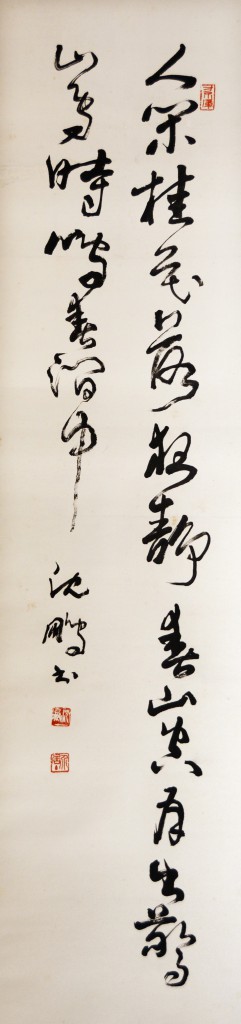 人閑桂花落夜靜春山空月出驚
山鳥時鳴春澗中
沈鵬書